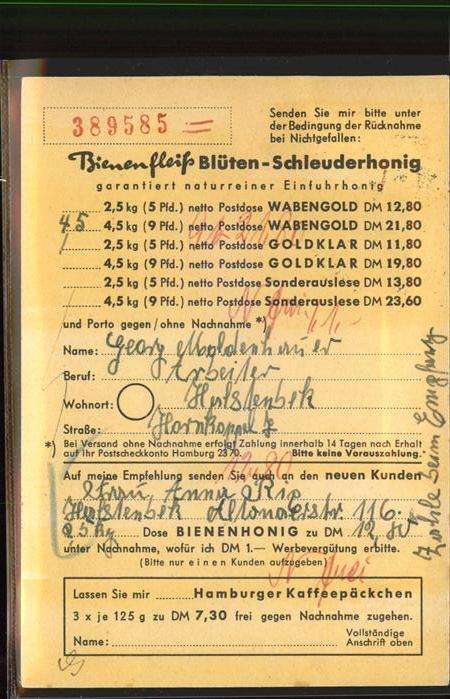 389585 =
Senden Sie mir bitte unter
der Bedingung der Rücknahme
bei Nichtgefallen:
Bienenfleiß Blüten-Schleuderhonig
garantiert naturreiner Einfuhrhonig
2,5 kg (5 Pfd.) netto Postdose WABENGOLD DM 12,80
4,5 4,5 kg (9 Pfd.) netto Postdose WABENGOLD DM 21,80
2,5 kg (5 Pfd.) netto Postdose GOLDKLAR DM 11,80
4,5 kg (9 Pfd.) netto Postdose GOLDKLAR DM 19,80
2,5 kg (5 Pfd.) netto Postdose Sonderauslese DM 13,80
4,5 kg (9 Pfd.) netto Postdose Sonderauslese DM 23,60
und Porto gegen/ohne Nachnahme *)
Name: Georg Moldenhauer
Beruf: Arbeiter
Wohnort: Halstenbek
Straße: Hornkoppel 7
*) Bei Versand ohne Nachnahme erfolgt Zahlung innerhalb 14 Tagen nach Erhalt
auf Ihr Postscheckkonto Hamburg 2370. Bitte keine Vorauszahlung.
Auf meine Empfehlung senden Sie auch an den neuen Kunden
Frau Anna Kip
Halstenbek Altonaerstr. 116
2,5 kg Dose BIENENHONIG zu DM 12,80
unter Nachnahme, wofür ich DM 1.— Werbevergütung erbitte.
(Bitte nur einen Kunden aufzugeben)
Lassen Sie mir Hamburger Kaffeepäckchen
3 x je 125 g zu DM 7,30 frei gegen Nachnahme zugehen.
Name: Vollständige
Anschrift oben
Zahle beim Empfang